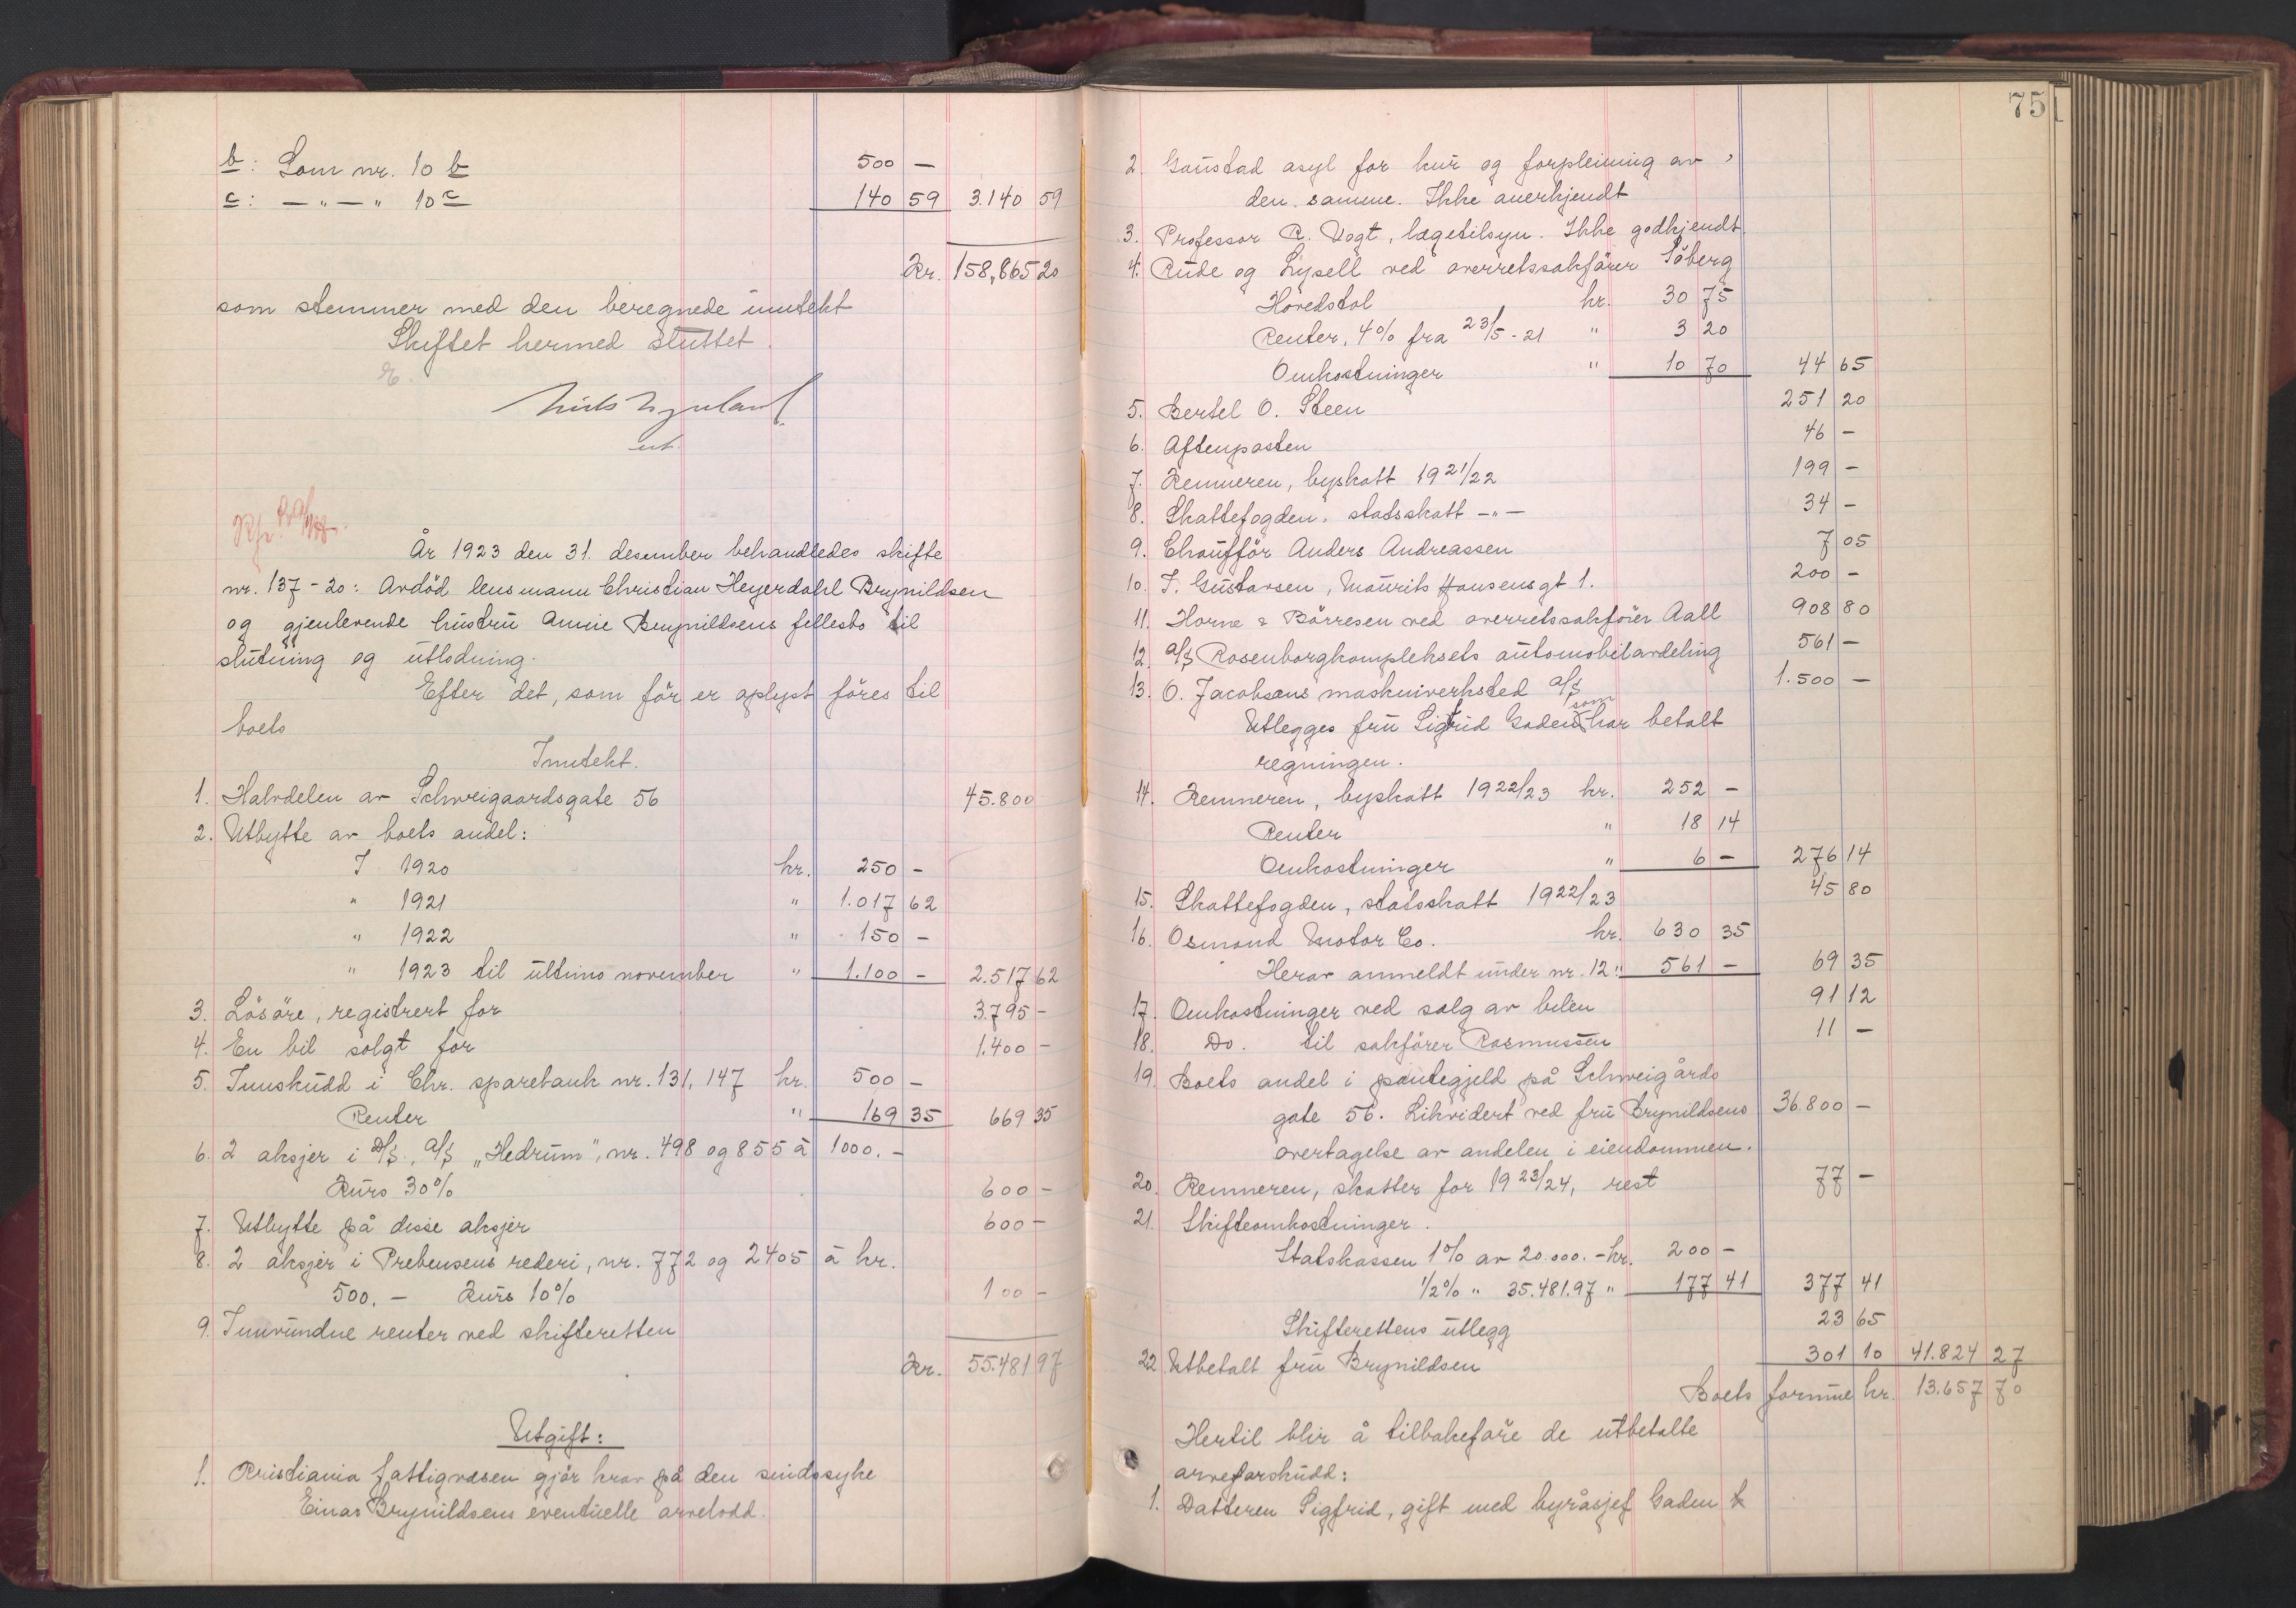 b: Som nr. 10 b 500 —
c: — " — " 10 c 140 59 3.140 59
Kr. 158,865 20
som stemmer med den beregnede inntekt
Skiftet hermed sluttet.
År 1923 den 31. desember behandledes skifte
nr. 137-20: Avdöd lensmann Christian Heyerdahl Brynildsen
og gjenlevende hustru Annie Brynildsens fellesbo til
slutning og utlodning.
Efter det, som för er oplyst föres til
boets
Inntekt.
1. Halvdelen av Schweigaardsgate 56 45.800
2. Utbytte av boets andel:
I 1920 kr. 250 -
" 1921 " 1.017 62
" 1922 " 150 -
" 1923 til ultimo november " 1.100 - 2.517 62
3. Lösöre, registrert for 3.795 -
4. En bil solgt for 1.400 -
5. Innskudd i Chr. sparebank nr. 131,147 kr. 500 -
Renter " 169 35 669 35
6. 2 aksjer i D/S. A/S „Hedrum", nr. 498 og 855 à 1000. -
Kurs 30% 600 -
7. Utbytte på disse aksjer 600 -
8. 2 aksjer i Prebensens rederi, nr. 772 og 2405 à kr.
500. - Kurs 10% 100 -
9. Innvundne renter ved skifteretten
Kr. 55.481 97
Utgift:
1. Kristiania fattigvæsen gjör krav på den sindssyke
Einar Brynildsens eventuelle arvelodd.
75
2. Gaustad asyl for kur og forpleining av
den samme. Ikke anerkjendt
3. Professor R. Vogt, lægetilsyn. Ikke godkjendt.
4. Rude og Lysell ved overretssakförer Söberg
Hovedstol kr. 30 75
Renter, 4% fra 23/5-21 " 3 20
Omkostninger " 10 70 44 65
5. Bertel O. Steen 251 20
6. Aftenposten 46 -
7. Kemneren, byskatt 1921/22 199 -
8. Skattefogden, statsskatt -"- 34 -
9. Chaufför Anders Andreassen 7 05
10. J. Gustavsen, Maurits Hansensgt 1. 200 -
11. Horne & Börresen ved overretssakförer Aall 908 80
12. A/S Rosenborgkompleksets automobilavdeling 561 -
13. O. Jacobsens maskinverksted A/S 1.500 -
Utlegges fru Sigfrid Gaden som har betalt
regningen.
14. Kemneren, byskatt 1922/23 kr. 252 -
Renter " 18 14
Omkostninger " 6 - 276 14
15. Skattefogden, statsskatt 1922/23 45 80
16. Osmond Motor Co. kr. 630 35
Herav anmeldt under nr. 12 " 561 - 69 35
17. Omkostninger ved salg av bilen 91 12
18. Do. til sakförer Rasmussen 11 -
19. Boets andel i pantegjeld på Schweigårds
gate 56. Likvidert ved fru Brynildsens 36.800 -
overtagelse av andelen i eiendommen.
20. Kemneren, skatter for 1923/24, rest 77 -
21. Skifteomkostninger.
Statskassen 1% av 20.000.- kr. 200 -
1/2% " 35.481.97 " 177 41 377 41
Skifterettens utlegg 23 65
22. Utbetalt fru Brynildsen 301 10 41.824 27
Boets formue kr. 13.657 70
Hertil blir å tilbakeföre de utbetalte
arveforskudd:
1. Datteren Sigfrid, gift med byråsjef Gaden